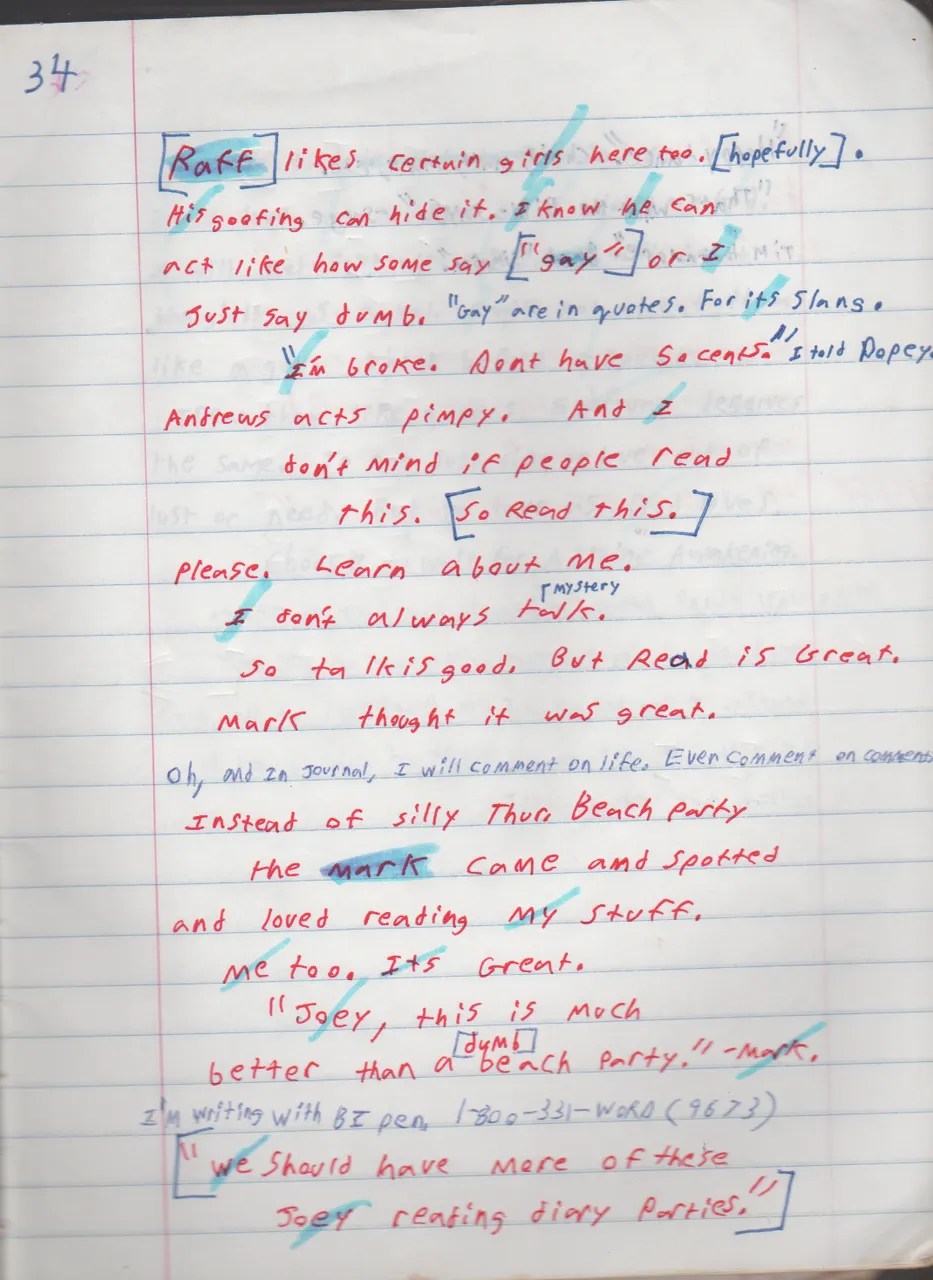 34
[Raff] likes certain girls here too. [hopefully].
His goofing can hide it. I know he can
act like how some say ["gay"] or I
Just say dumb. "Gay" are in quotes. For its slang.
"I'm broke. Dont have 50 cents." I told Dopey.
Andrews acts pimpy. And I
don't mind if people read
this. [So Read this.]
please. Learn about me.
mystery
I don't always talk.
So talk is good. But Read is Great.
Mark thought it was great.
Oh, and in journal, I will comment on life. Even comment on comments
Instead of silly Thur. Beach party
the mark came and spotted
and loved reading my stuff.
Me too. Its Great.
"Joey, this is much
[dumb]
better than a beach party." -Mark.
I'm writing with BI pen. 1-800-331-WORD (9673)
["We should have more of these
Joey reading diary parties."]